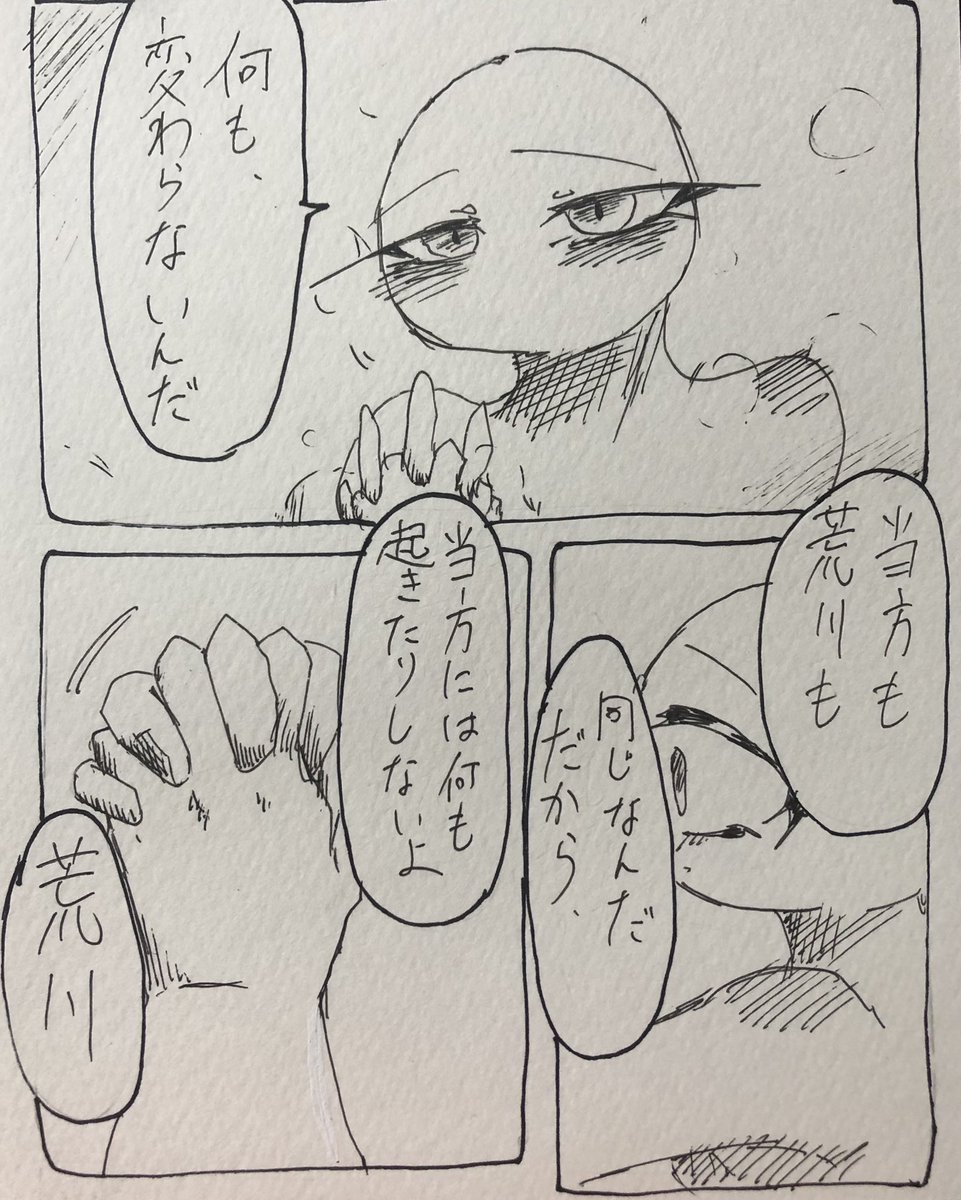 何も、
変わらないんだ
当方も
荒川も
同じなんだ
だから、
当方には何も
起きたりしないよ
荒川